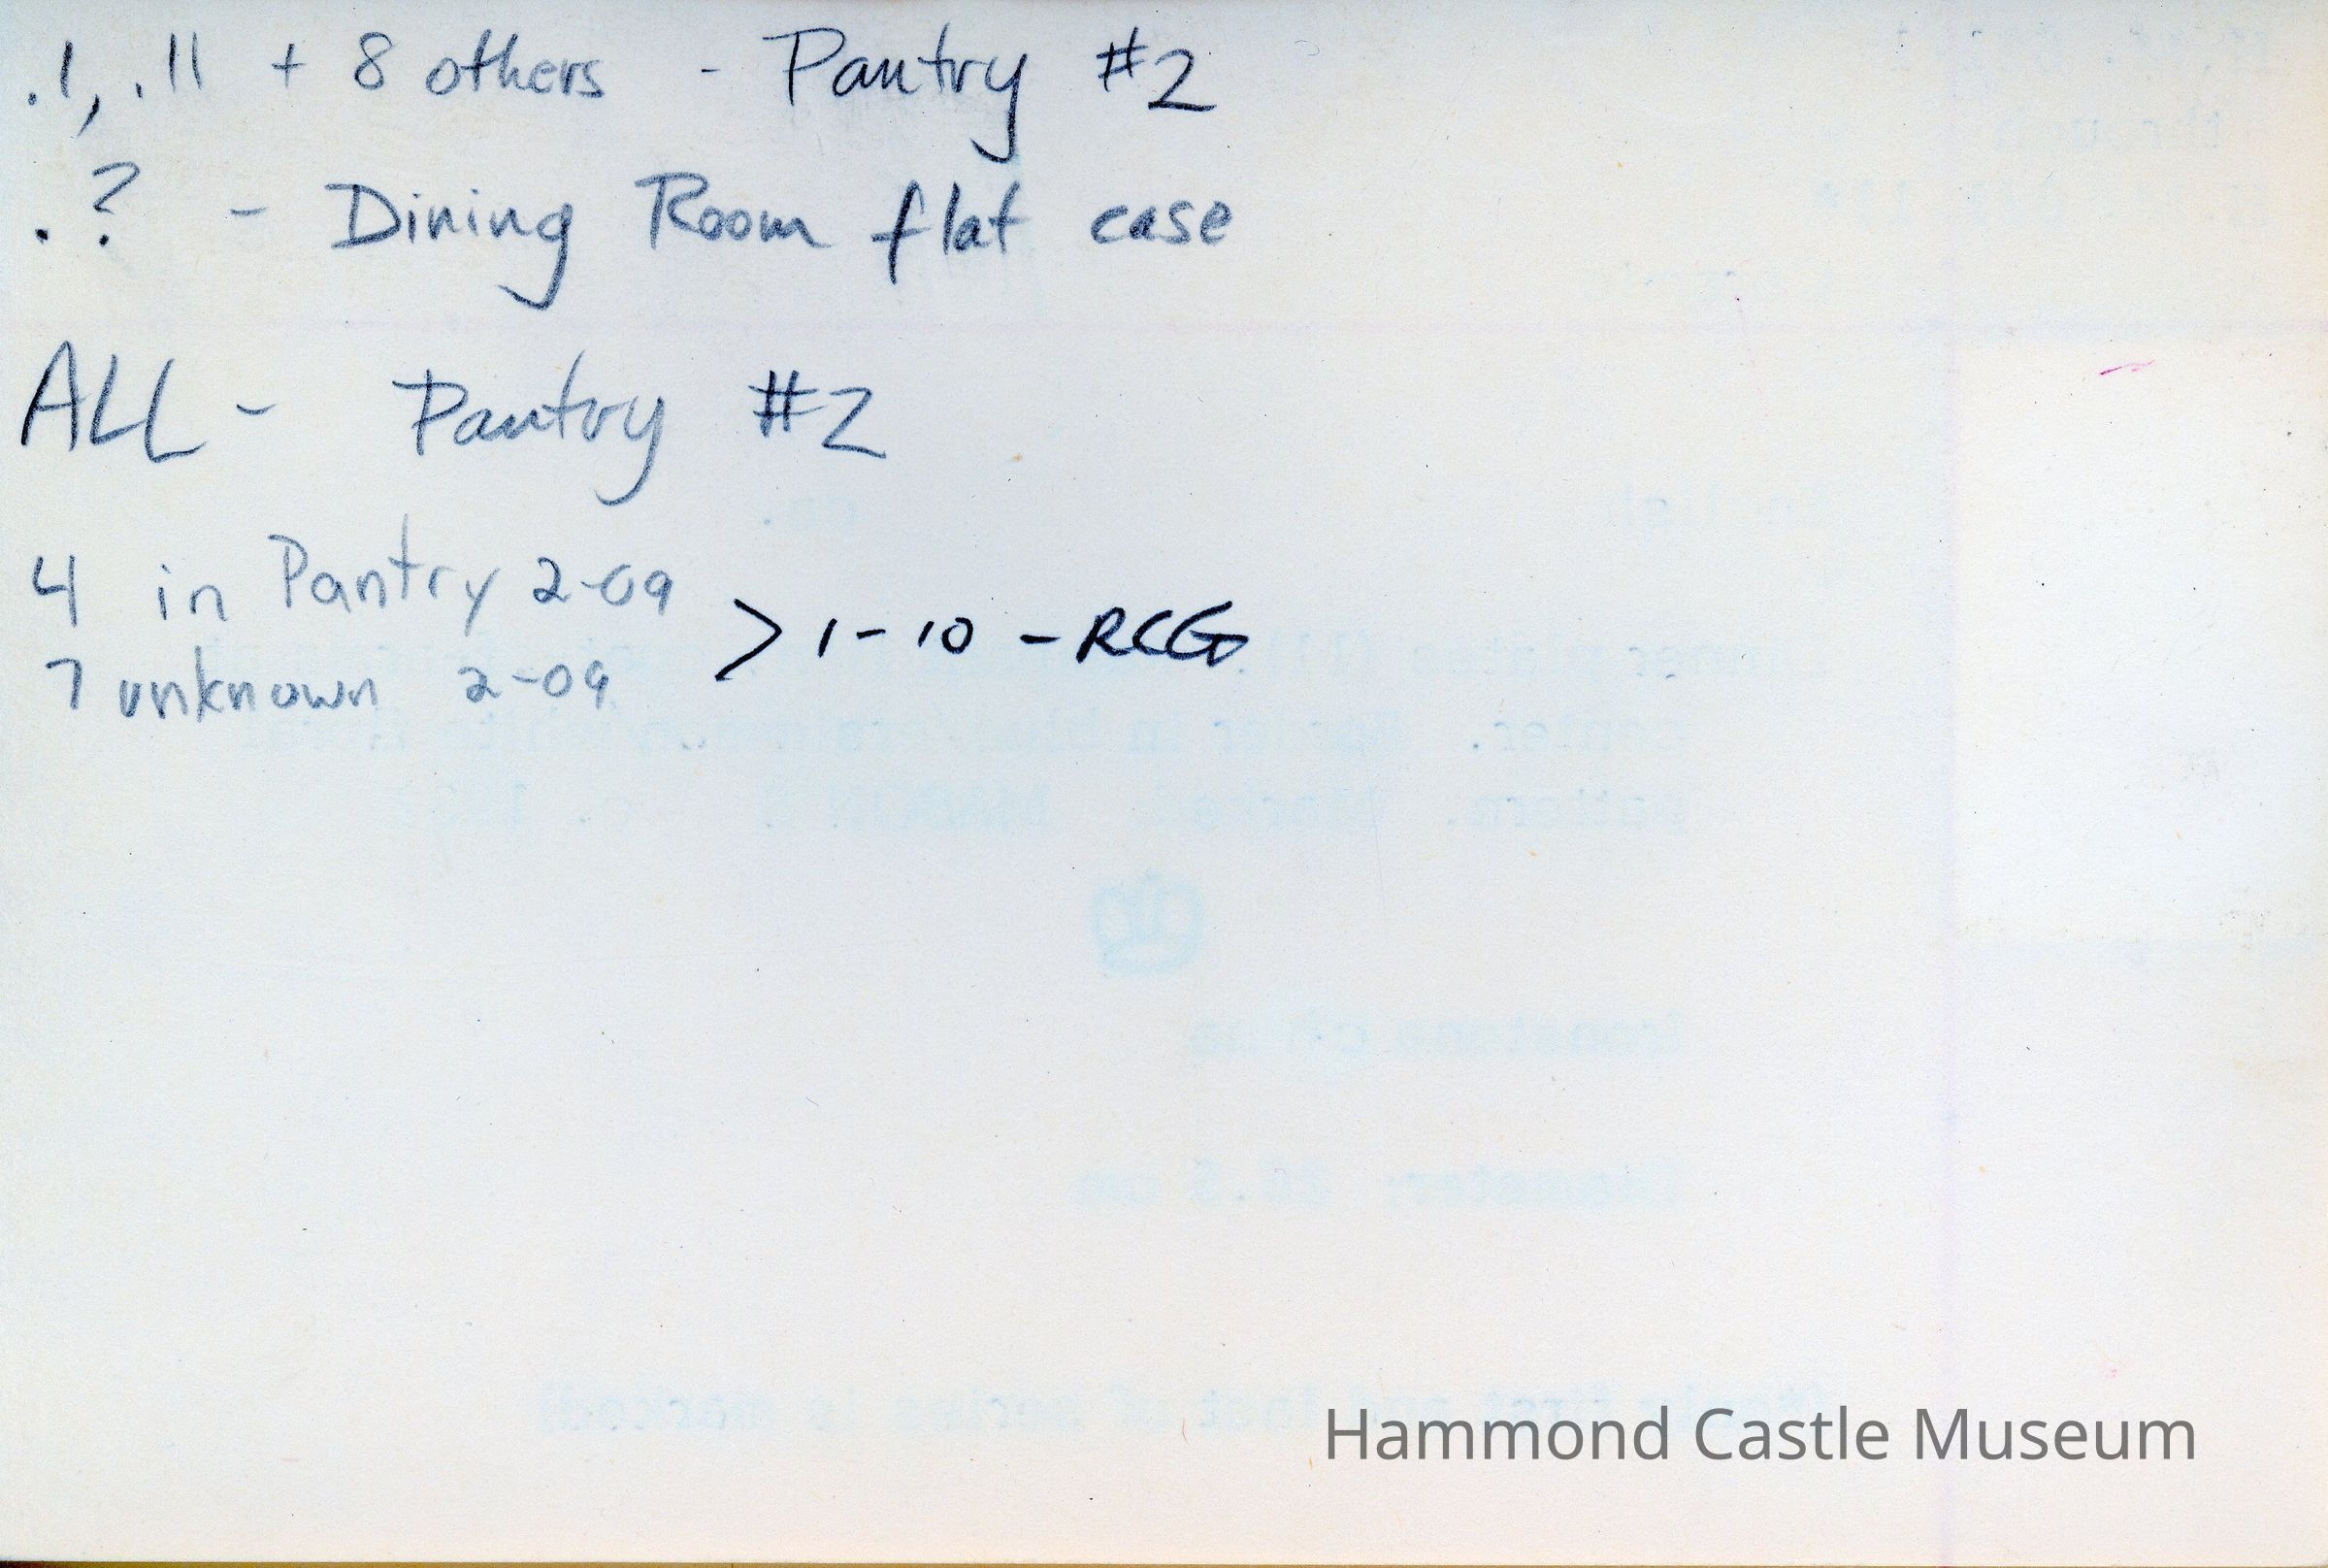 .1, .11 + 8 others - Pantry #2
.? - Dining Room flat case
ALL - Pantry #2
4 in Pantry 2-09
> 1-10 - RCG
7 unknown 2-09
Hammond Castle Museum